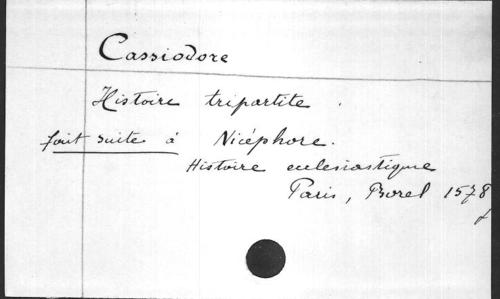 Cassiodore
Histoire tripartite.
fait suite à Nicéphore.
Histoire eclesiastique
Paris, Borel 1578
f